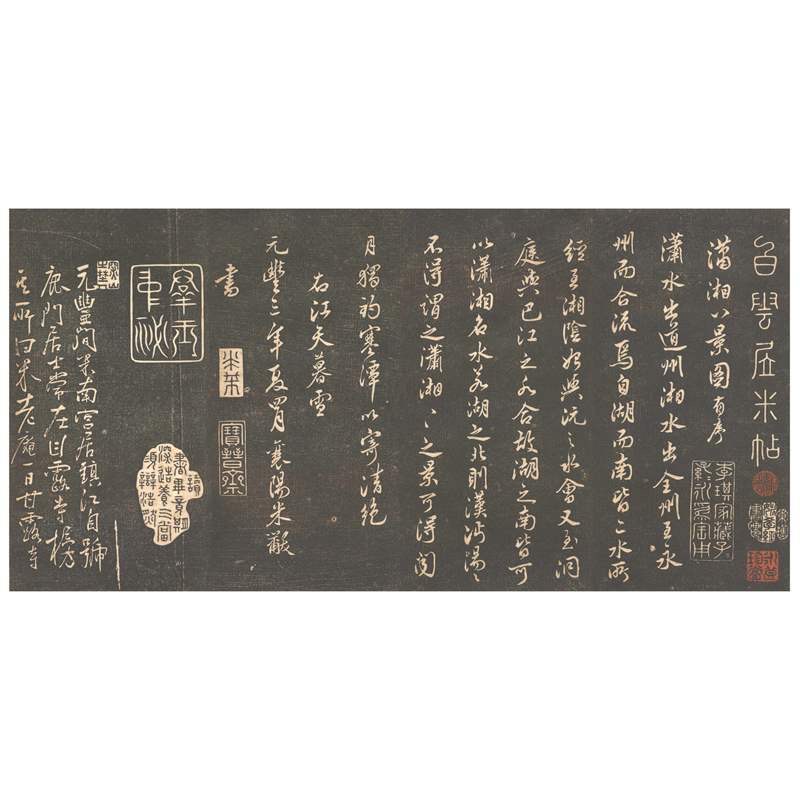 白雲居米帖
瀟湘八景圖有序
瀟水出道州湘水出全州至永
州而合流焉自湖而南皆二水所
經至湘陰始與沅之水會又至洞
庭與巴江之水合故湖之南皆可
以瀟湘名水若湖之北則漢沔湯湯
不得謂之瀟湘瀟湘之景可得聞
月獨釣寒潭以寄清絕
右江天暮雪
元豐三年夏四月襄陽米黻
書
米芾
寶晉齋
元豐間米南宮居鎮江自號
鹿門居士常在甘露寺榜
其所曰米老庵一日甘露寺